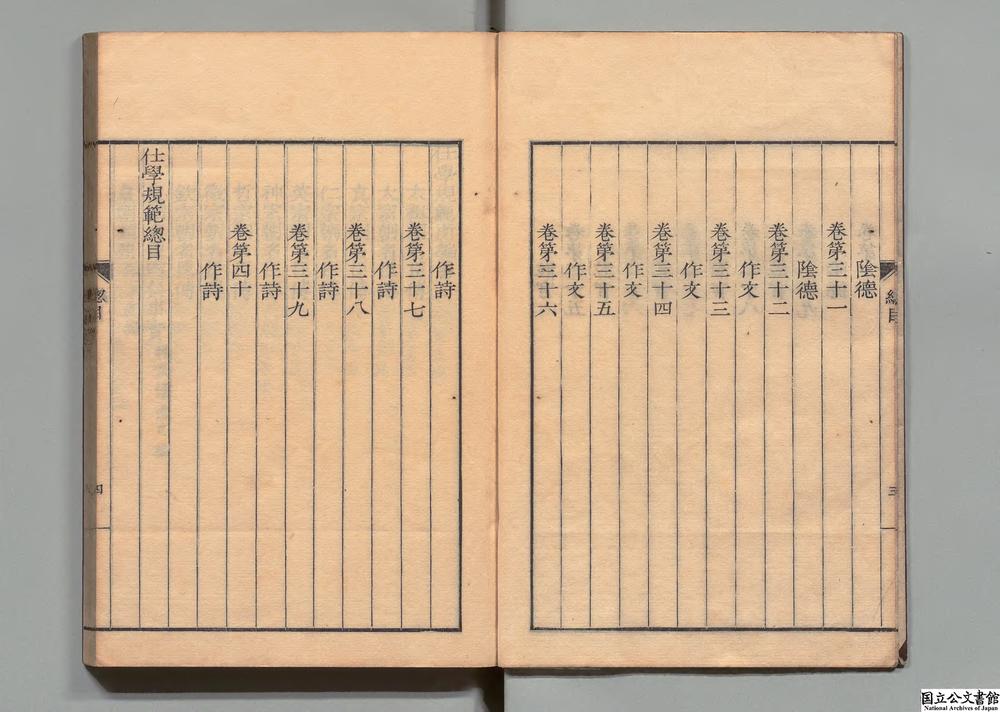 陰德
卷第三十一
陰德
卷第三十二
作文
卷第三十三
作文
卷第三十四
作文
卷第三十五
作文
卷第三十六
總目
三
作詩
卷第三十七
作詩
卷第三十八
作詩
卷第三十九
作詩
卷第四十
作詩
仕學規範總目
總目
四
国立公文書館
National Archives of Japan